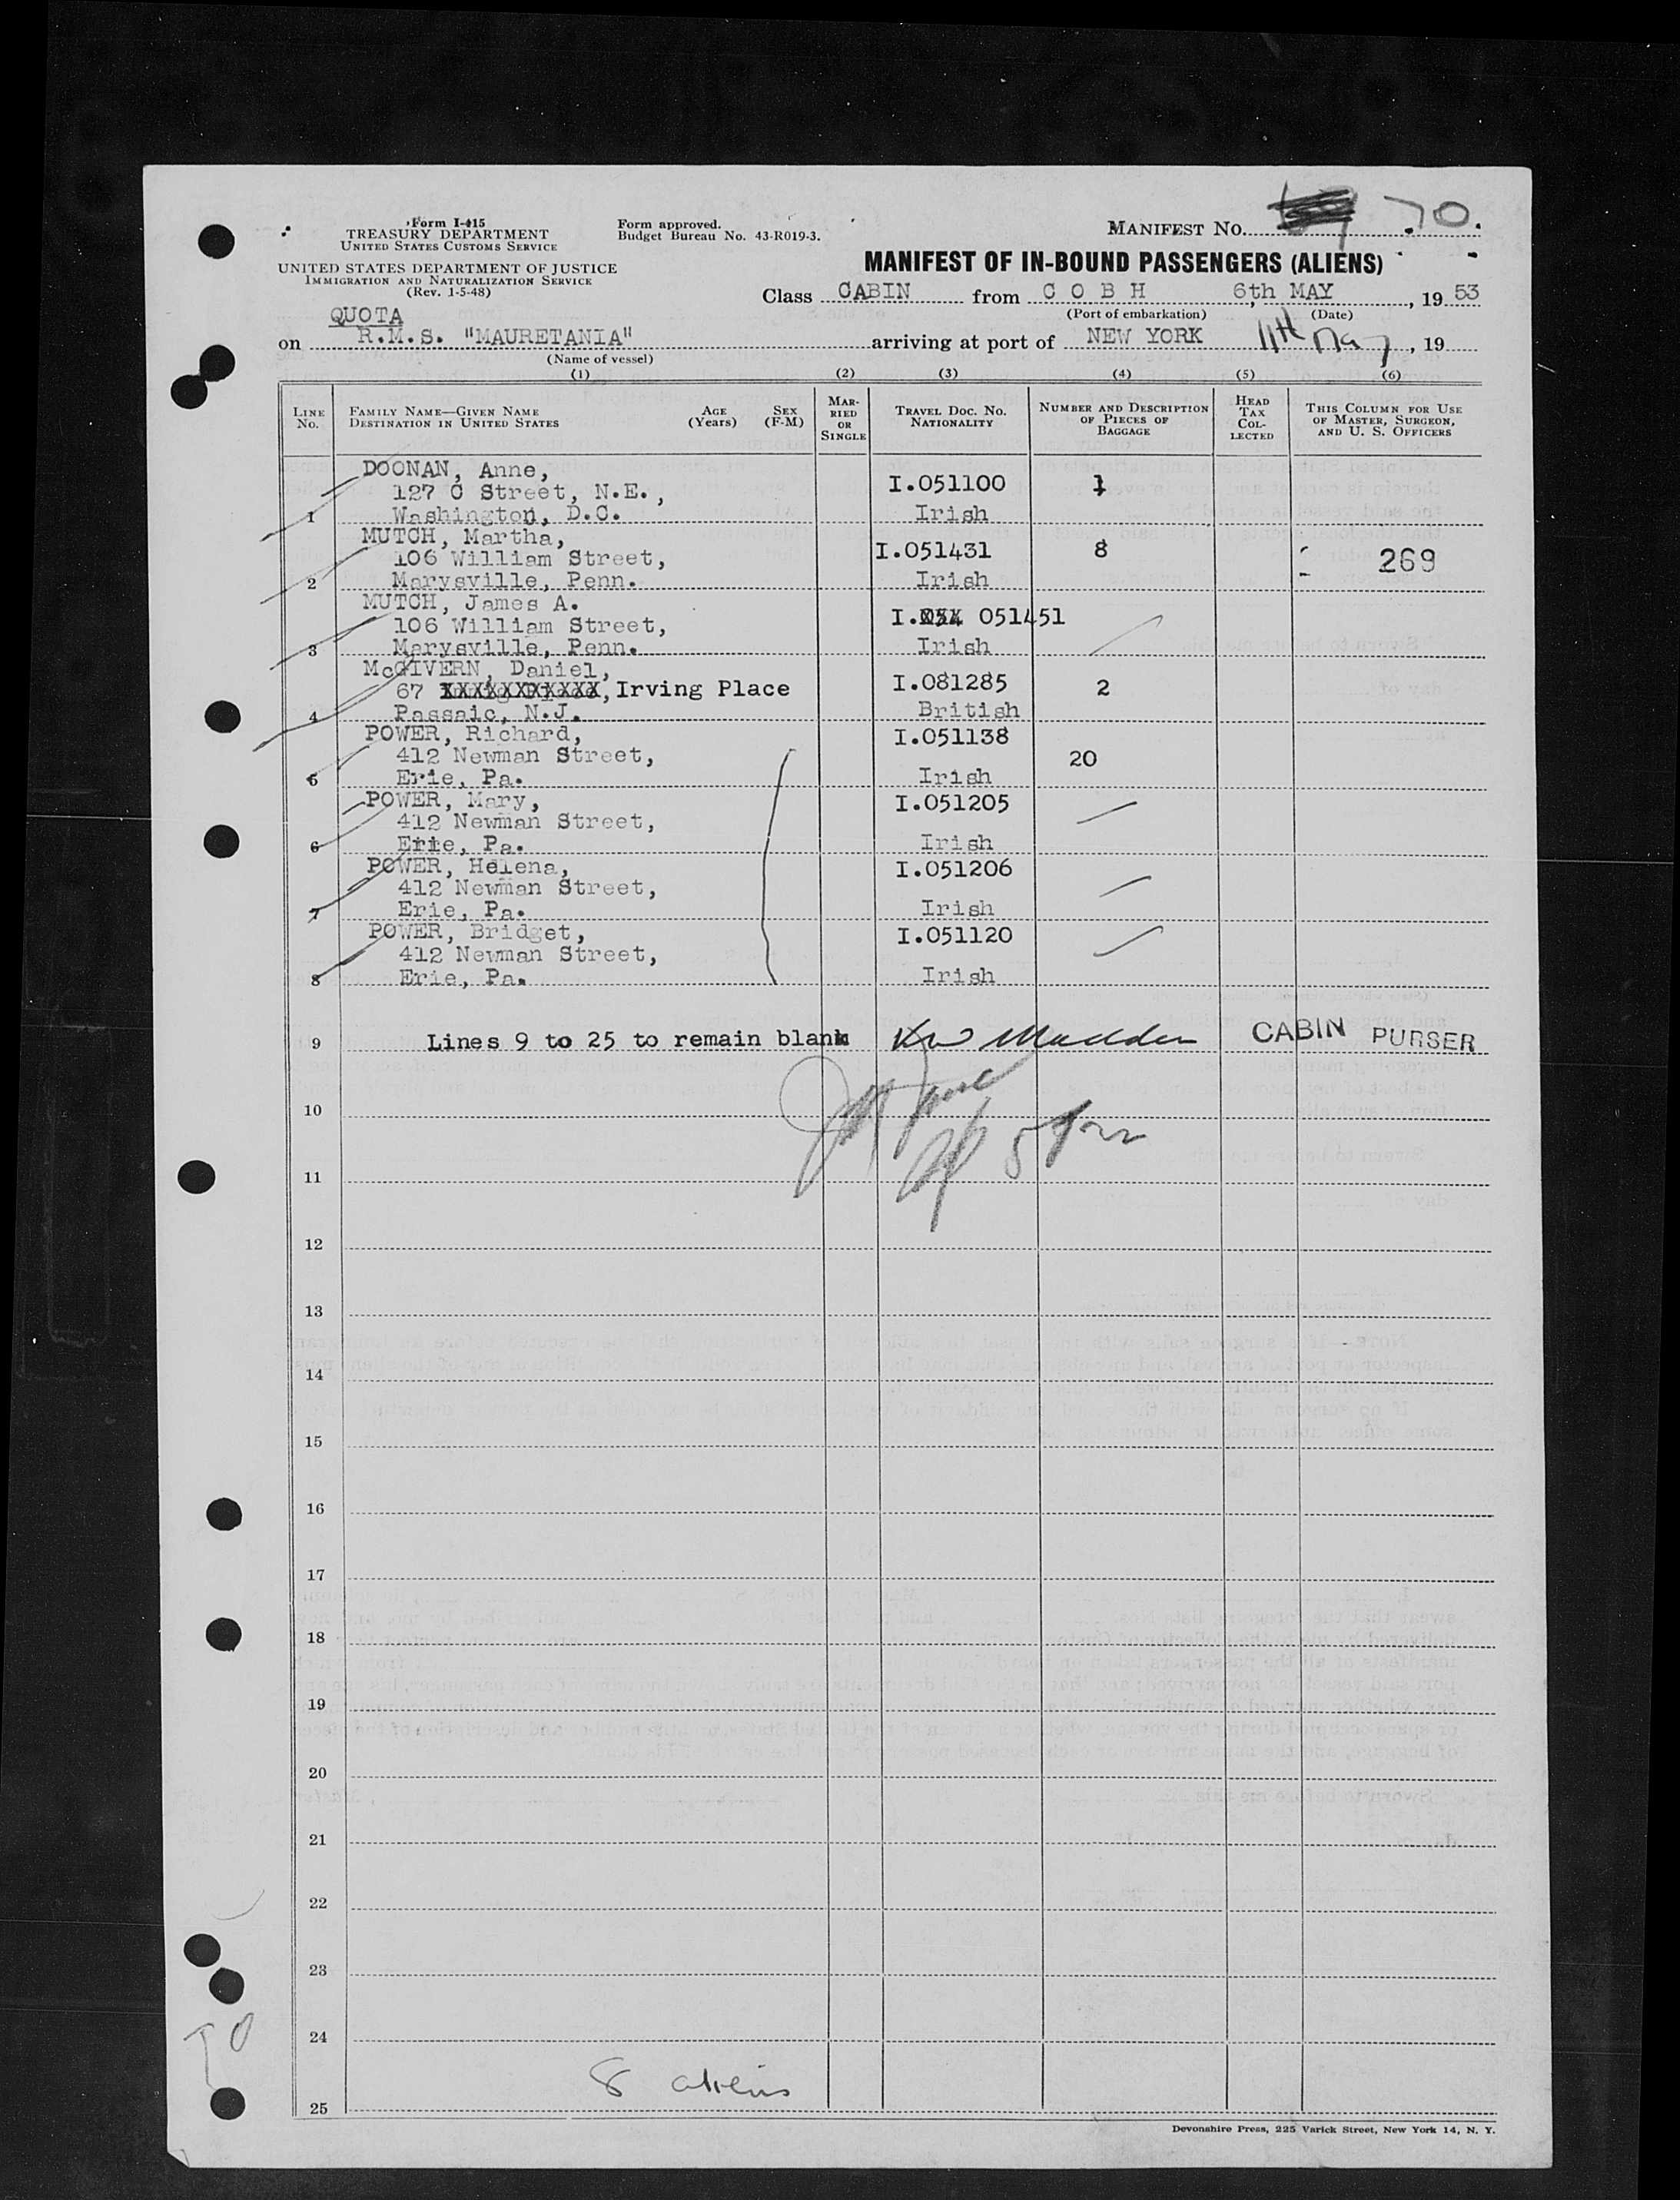 Form I-415
TREASURY DEPARTMENT
UNITED STATES CUSTOMS SERVICE
UNITED STATES DEPARTMENT OF JUSTICE
IMMIGRATION AND NATURALIZATION SERVICE
(Rev. 1-5-48)
Form approved.
Budget Bureau No. 43-R019-3.
MANIFEST NO. 70.
MANIFEST OF IN-BOUND PASSENGERS (ALIENS)
Class CABIN from C O B H 6th MAY, 19 53
(Port of embarkation) (Date)
QUOTA
on R.M.S. "MAURETANIA" arriving at port of NEW YORK 11th May, 19
(Name of vessel)
(1) (2) (3) (4) (5) (6)
LINE NO. FAMILY NAME—GIVEN NAME DESTINATION IN UNITED STATES AGE (Years) SEX (F-M) MARRIED OR SINGLE TRAVEL DOC. NO. NATIONALITY NUMBER AND DESCRIPTION OF PIECES OF BAGGAGE HEAD TAX COLLECTED THIS COLUMN FOR USE OF MASTER, SURGEON, AND U. S. OFFICERS
DOONAN, Anne,
127 C Street, N.E., I.051100 1
1 Washington, D.C. Irish
MUTCH, Martha,
106 William Street, I.051431 8 269
2 Marysville, Penn. Irish
MUTCH, James A.
106 William Street, I. 051451
3 Marysville, Penn. Irish
McGIVERN, Daniel,
67 XXXXXXXXXXXX, Irving Place I.081285 2
4 Passaic, N.J. British
POWER, Richard, I.051138
412 Newman Street, 20
5 Erie, Pa. Irish
POWER, Mary, I.051205
412 Newman Street,
6 Erie, Pa. Irish
POWER, Helena, I.051206
412 Newman Street,
7 Erie, Pa. Irish
POWER, Bridget, I.051120
412 Newman Street,
8 Erie, Pa. Irish
9 Lines 9 to 25 to remain blank Madden CABIN PURSER
10
11
12
13
14
15
16
17
18
19
20
21
22
23
24
70
8 aliens
25
Devonshire Press, 225 Varick Street, New York 14, N. Y.